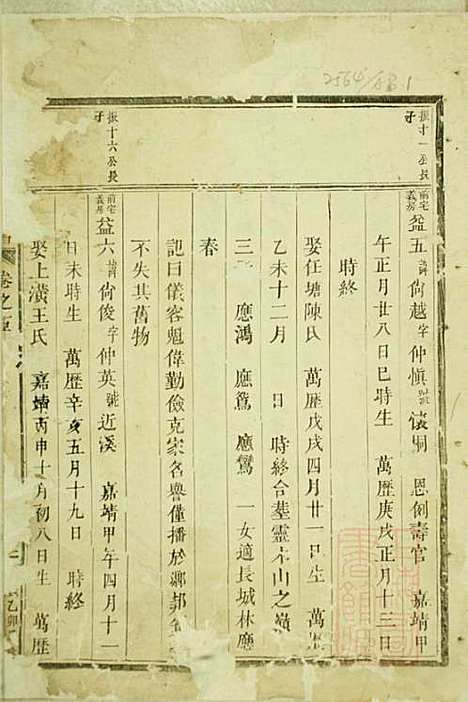 2564
振十一公長子
前宅義房 益五 諱 尙越 字 仲愼 恩例壽官 嘉靖甲
午正月廿八日巳時生 萬歷庚戌正月十三日
時終
娶任塘陳氏 萬歷戊戌四月廿一日生 萬
乙未十二月 日 時終合塟靈 山之嶺
三 應鴻 應鸞 一女適長城林應
春
記曰儀容魁偉勤儉克家名譽僅播於鄉邦
不失其舊物
振十六公長子
前宅義房 益六 諱 尙俊 字 仲英 號 近溪 嘉靖甲午年四月十一
日未時生 萬歷辛亥五月十九日 時終
娶上潢王氏 嘉靖丙申十月初八日生 萬歷
卷之
乙卯